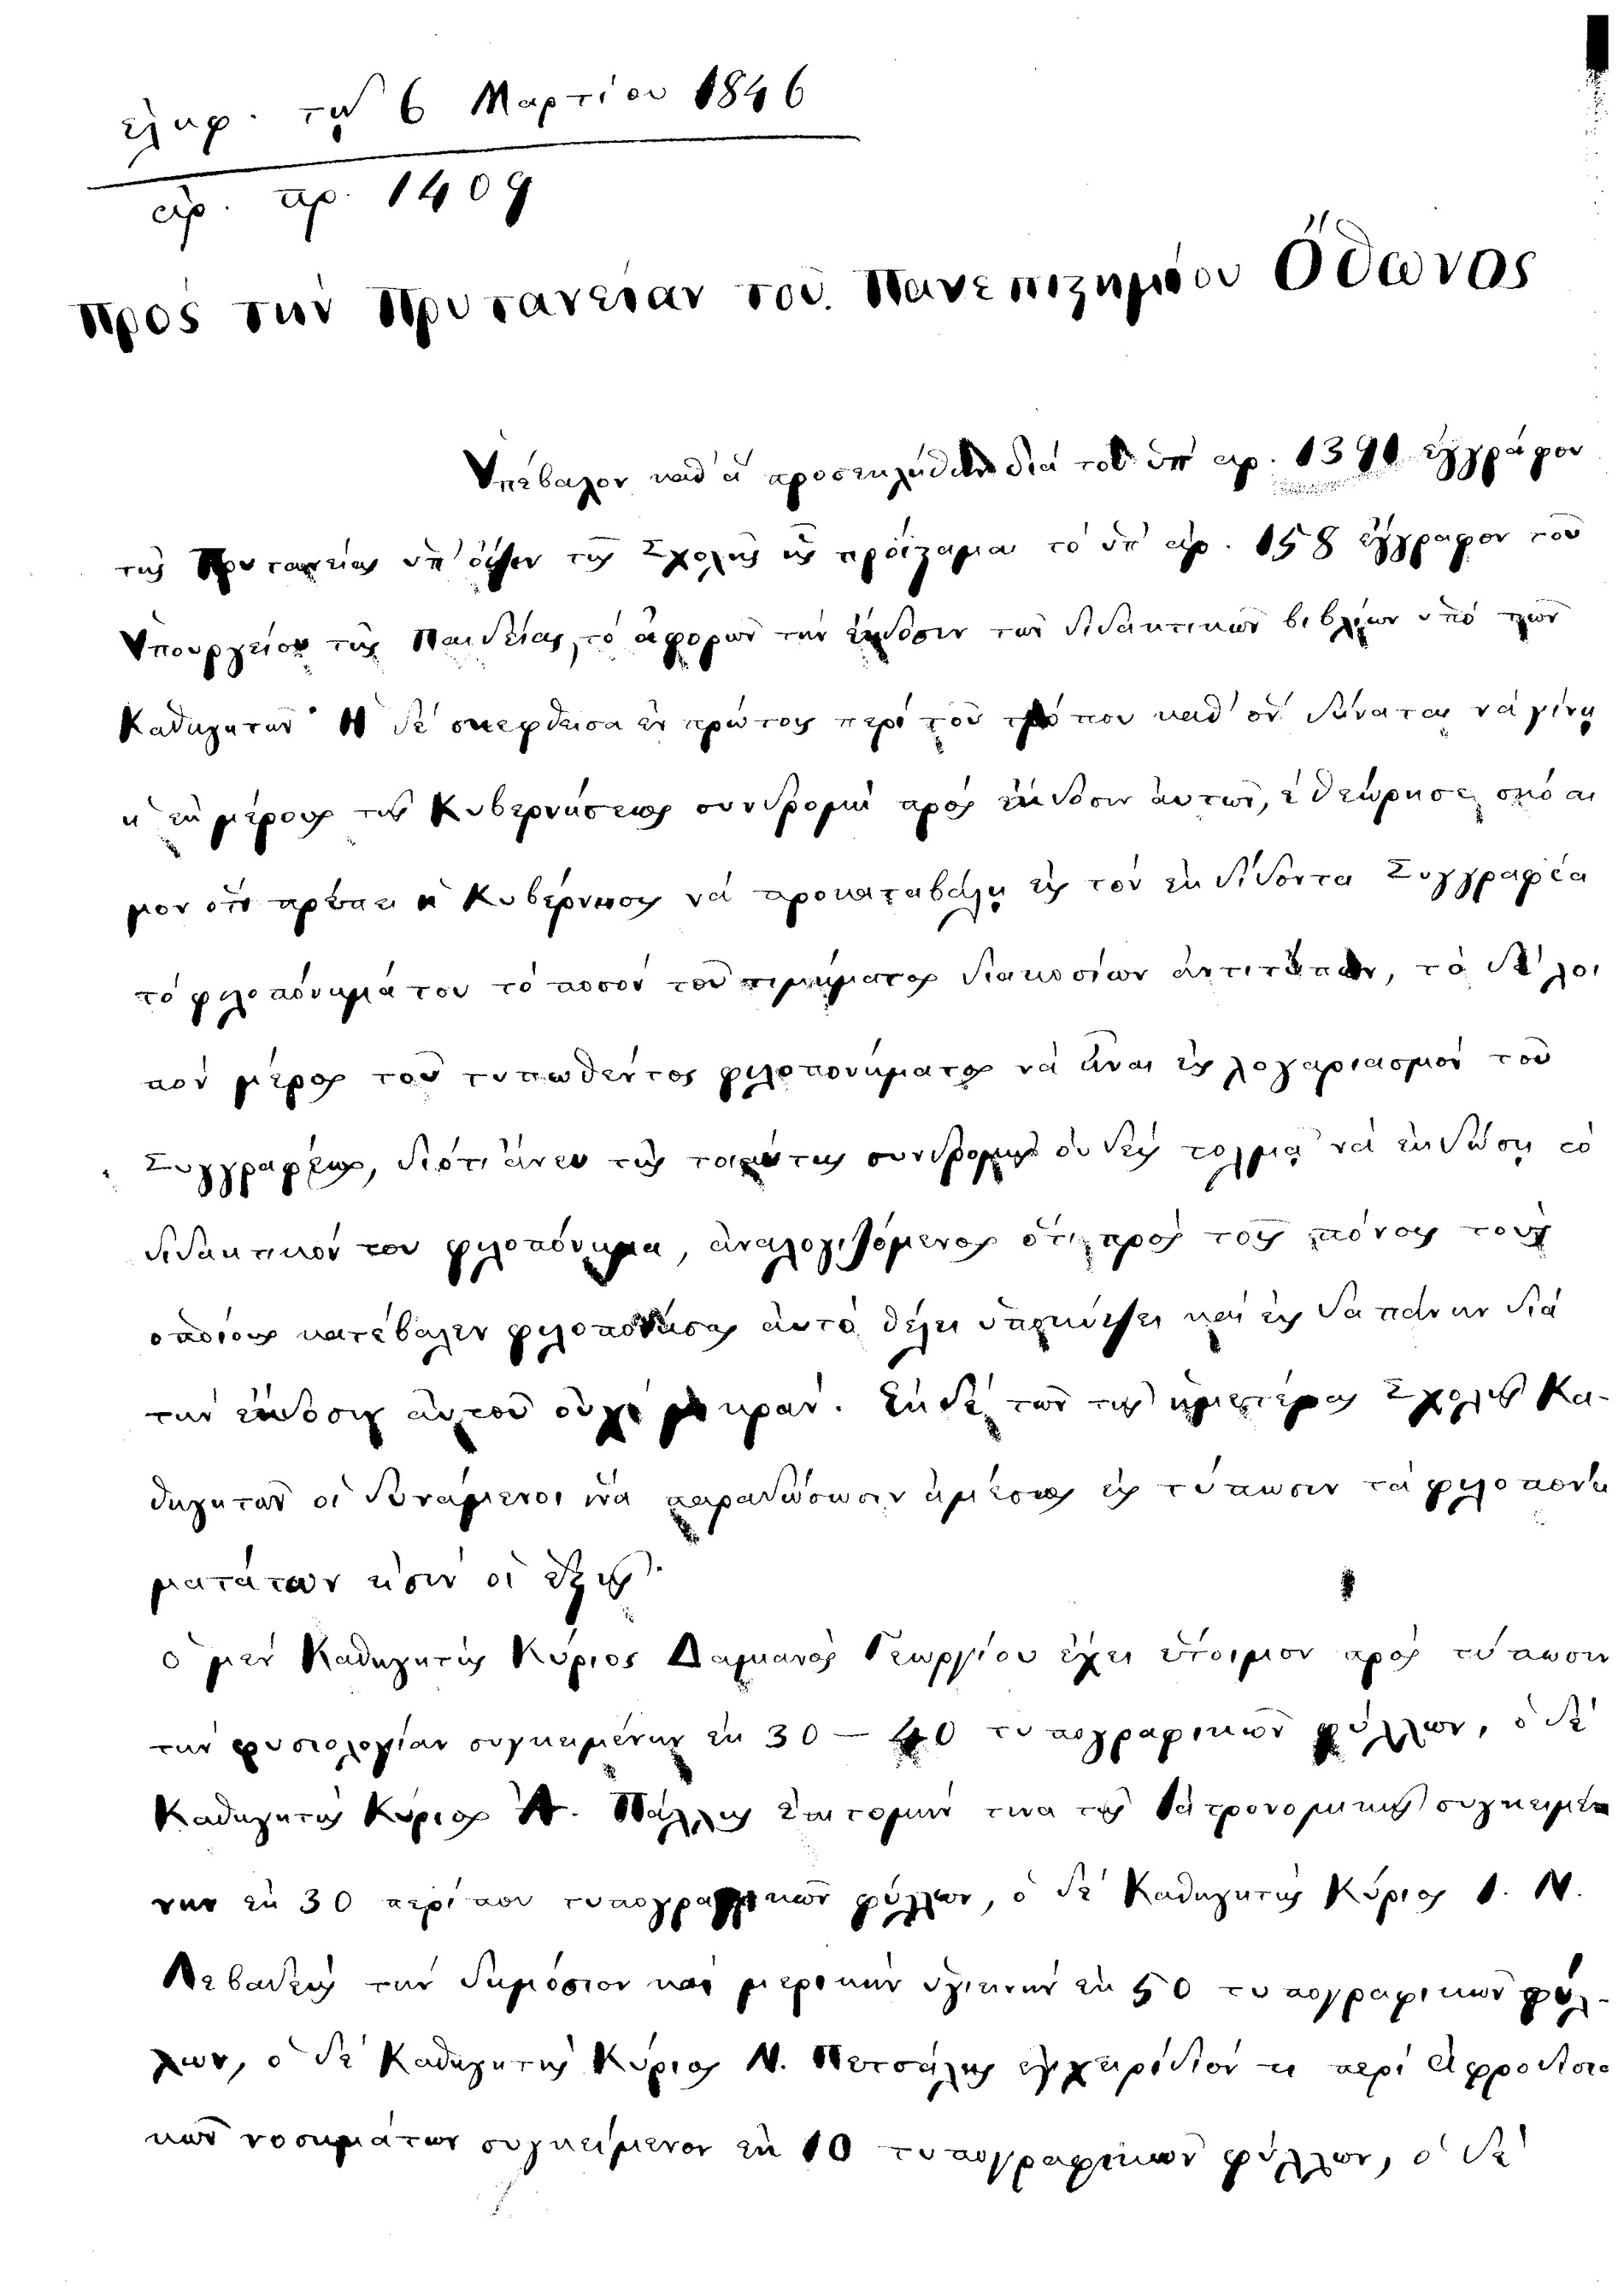 ἐλήφ. τῇ 6 Μαρτίου 1846
ἀρ. πρ. 1409
Πρὸς τὴν Πρυτανείαν τοῦ Πανεπιστημίου Ὄθωνος
Ὑπέβαλον καθ' ἃ προσεκλήθην διὰ τοῦ ὑπ' ἀρ. 1391 ἐγγράφου
τῆς Πρυτανείας ὑπ' ὄψιν τῆς Σχολῆς ἧς προΐσταμαι τὸ ὑπ' ἀρ. 158 ἔγγραφον τοῦ
Ὑπουργείου τῆς Παιδείας, τὸ ἀφορῶν τὴν ἔκδοσιν τῶν διδακτικῶν βιβλίων ὑπὸ τῶν
Καθηγητῶν· Ἡ δὲ σκεφθεῖσα ἐν πρώτοις περὶ τοῦ τρόπου καθ' ὃν δύναται νὰ γίνῃ
ἡ ἐκ μέρους τῆς Κυβερνήσεως συνδρομὴ πρὸς ἔκδοσιν αὐτῶν, ἐθεώρησε σκόπι
μον ὅτι πρέπει ἡ Κυβέρνησις νὰ προκαταβάλῃ εἰς τὸν ἐκδίδοντα Συγγραφέα
τὸ φιλοπόνημά του τὸ ποσὸν τοῦ τιμήματος διακοσίων ἀντιτύπων, τὸ δὲ λοι
πὸν μέρος τοῦ τυπωθέντος φιλοπονήματος νὰ ἦναι εἰς λογαριασμὸν τοῦ
Συγγραφέως, διότι ἄνευ τῆς τοιαύτης συνδρομῆς οὐδεὶς τολμᾷ νὰ ἐκδώσῃ τὸ
διδακτικόν του φιλοπόνημα, ἀναλογιζόμενος ὅτι πρὸς τοῖς πόνοις τοὺς
ὁποίους κατέβαλεν φιλοπονήσας αὐτὸ θέλει ὑποκύψει καὶ εἰς δαπάνην διὰ
τὴν ἔκδοσιν αὐτοῦ οὐχὶ μικράν. Ἐκ δὲ τῶν τῆς ἡμετέρας Σχολῆς Κα-
θηγητῶν οἱ δυνάμενοι νὰ παραδώσωσιν ἀμέσως εἰς τύπωσιν τὰ φιλοπονή
ματά των εἰσὶν οἱ ἑξῆς·
ὁ μὲν Καθηγητὴς Κύριος Δαμιανὸς Γεωργίου ἔχει ἕτοιμον πρὸς τύπωσιν
τὴν φυσιολογίαν συγκειμένην ἐκ 30 — 40 τυπογραφικῶν φύλλων, ὁ δὲ
Καθηγητὴς Κύριος Ἀ. Πάλλης ἐπιτομήν τινα τῆς Ἰατρονομικῆς συγκειμέ
νην ἐκ 30 περίπου τυπογραφικῶν φύλλων, ὁ δὲ Καθηγητὴς Κύριος Ι. Ν.
Λεβαδεὺς τὴν δημόσιον καὶ μερικὴν ὑγιεινὴν ἐκ 50 τυπογραφικῶν φύλ-
λων, ὁ δὲ Καθηγητὴς Κύριος Ν. Πετσάλης ἐγχειρίδιόν τι περὶ Ἀφροδισια
κῶν νοσημάτων συγκείμενον ἐκ 10 τυπογραφικῶν φύλλων, ὁ δὲ